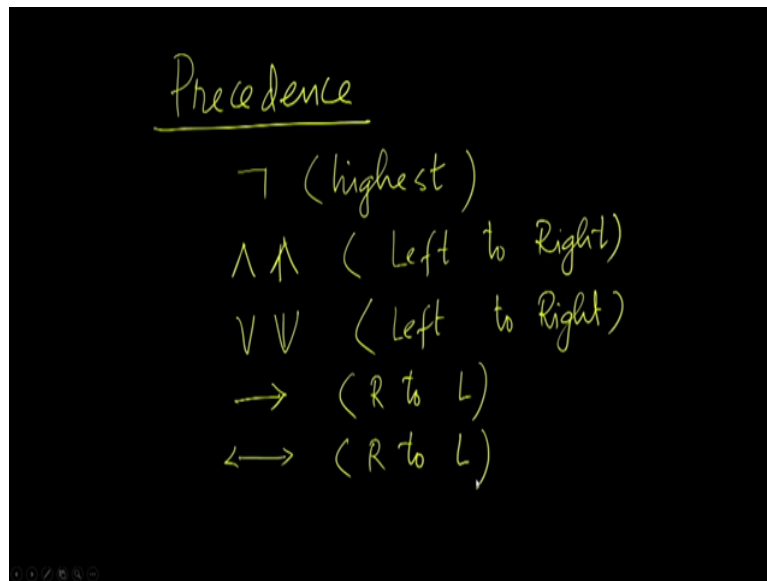 Precedence
¬ (highest)
∧ ⩚ (Left to Right)
∨ ⩛ (Left to Right)
→ (R to L)
↔ (R to L)